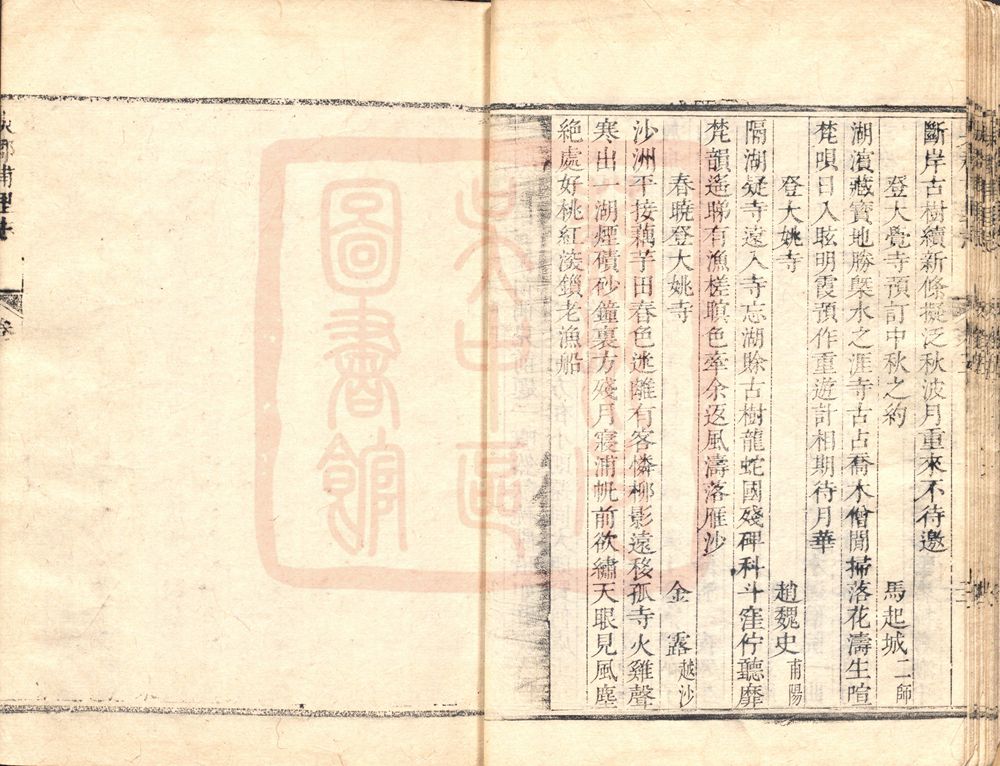 斷岸古樹續新條擬泛秋波月重來不待邀
登大覺寺預訂中秋之約 馬起城二師
湖濱藏寶地勝槩水之涯寺古占喬木僧閒掃落花濤生喧
梵唄日入眩明霞預作重遊計相期待月華
登大姚寺 趙魏史甫陽
隔湖疑寺遠入寺忘湖賖古樹龍蛇國殘碑科斗窪佇聽靡
梵韻遙睇有漁槎暝色牽余返風濤落雁沙
春曉登大姚寺 金露越沙
沙洲平接藕芋田春色迷離有客憐柳影遠移孤寺火雞聲
寒出一湖煙磧砂鐘裏方殘月寢浦帆前欲繡天眼見風塵
絕處好桃紅淩鎖老漁船
吳郡甫里志
卷
吳中區圖書館